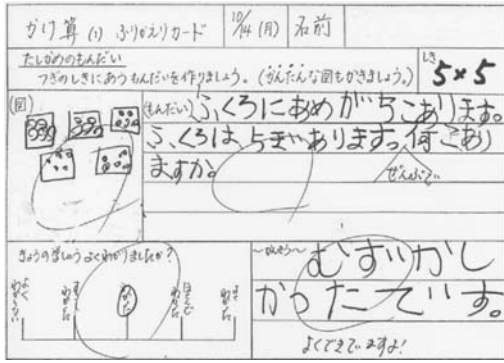 かけ算(1) ふりかえりカード
10/14(月)
名前
たしかめのもんだい
つぎのしきにあうもんだいを作りましょう。(かんたんな図もかきましょう。)
しき
5×5
(図)
(もんだい)ふくろにあめが5こあります。
ふくろは、5まいあります。何こあり
ますか。
ぜんぶで
きょうの学しゅうよくわかりましたか?
よくわからない
ほとんどわかった
〜かんそう〜
むずかし
かったてす。
よくできてますよ!